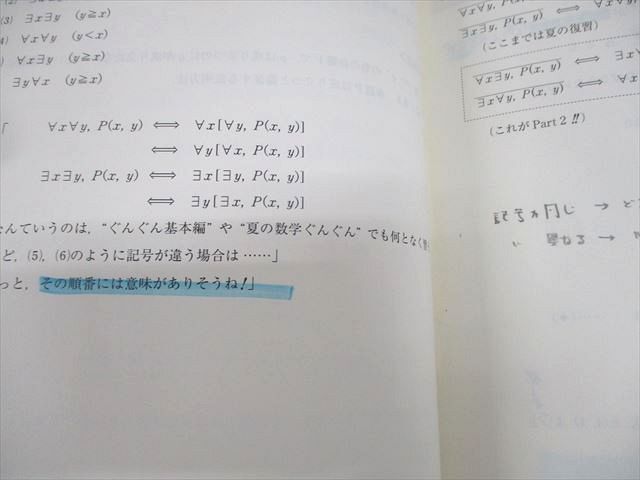 (3) ∃x∃y (y≧x)
∀x∀y (y<x)
∀x∃y (y≧x)
∃y∀x (y≧x)
「 ∀x∀y, P(x, y) ⟺ ∀x[∀y, P(x, y)]
⟺ ∀y[∀x, P(x, y)]
∃x∃y, P(x, y) ⟺ ∃x[∃y, P(x, y)]
⟺ ∃y[∃x, P(x, y)]
なんていうのは, “ぐんぐん基本編” や “夏の数学ぐんぐん” でも何となく
ど, (5), (6)のように記号が違う場合は ……」
っと, その順番には意味がありそうね!」
∀x∀y, P(x, y)
∃x∃y, P(x, y) ⟺ ∀x
(ここまでは夏の復習)
∀x∃y, P(x, y) ⟺ ∃x
∃x∀y, P(x, y) ⟺ ∀x
(これが Part 2 !!)
記号が同じ →
〃 異なる →